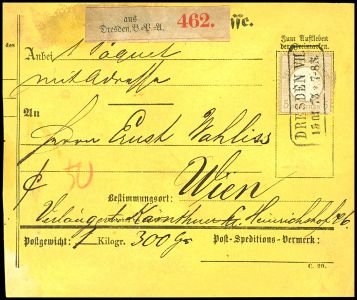 aus
Dresden, V.-P.-A. 462.
Zum Aufkleben
der Freimarken.
Anbei 1 Paquet
mit Adresse
An
Herrn Ernst Wahliss
Wien
Bestimmungsort:
Verlängerte Kärnthner Heinrichshof
Postgewicht: 1 Kilogr. 300 Gr.
Post-Speditions-Vermerk:
C. 20.
DRESDEN VII.